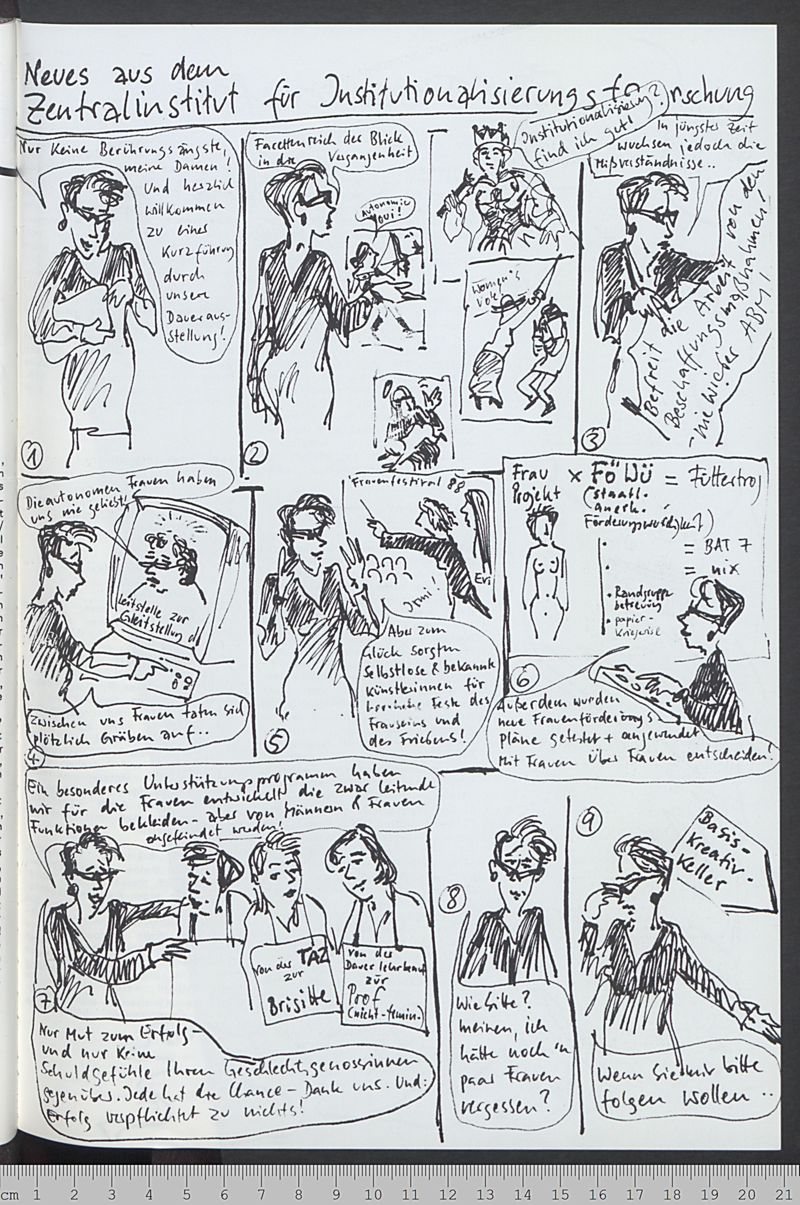 Neues aus dem
Zentralinstitut für Institutionalisierungsforschung
Nur keine Berührungsängste,
meine Damen!
Und herzlich
willkommen
zu einer
Kurzführung
durch
unsere
Dauer­aus-
stellung!
1
Facettenreich der Blick
in die Vergangenheit
Autonomie
Oui!
Institutionalisierung?
find ich gut!
Women's
Vote
2
In jüngster Zeit
wuchsen jedoch die
Mißverständnisse..
Befreit die Arbeit von den
Beschaffungsmaßnahmen!
nie wieder ABM!
3
Die autonomen Frauen haben
uns nie geliebt!
Leitstelle zur
Gleitstellung
Zwischen uns Frauen taten sich
plötzlich Gräben auf..
4
Frauenfestival 88
Eri
Irmi!
Aber zum
Glück sorgten
selbstlose & bekannte
Künstlerinnen für
Feste des
Frauseins und
des Friedens!
5
Frau x FöWü = Futtertrog
Projekt (staatl.
anerk.
Förderungswürdigkeit)
= BAT 7
= nix
• Randgruppe
betreuung
• papier-
kriegerei
6
Außerdem wurden
neue Frauenförderungs
Pläne getestet + angewendet
Mit Frauen über Frauen entscheiden!
Ein besonderes Unterstützungsprogramm haben
wir für die Frauen entwickelt, die zwar leitende
Funktionen bekleiden - aber von Männern & Frauen
angefeindet werden!
von der TAZ
zur
Brigitte
von der
Dauerlehrbeauf
zur
Prof
(nicht-femin.)
7
Nur Mut zum Erfolg -
und nur keine
Schuldgefühle Ihren Geschlechtsgenossinnen
gegenüber. Jede hat die Chance - Dank uns. Und:
Erfolg verpflichtet zu nichts!
8
Wie bitte?
meinen, ich
hätte noch 'n
paar Frauen
vergessen?
9
Basis-
Kreativ-
Keller
Wenn Sie mir bitte
folgen wollen ..
cm 1 2 3 4 5 6 7 8 9 10 11 12 13 14 15 16 17 18 19 20 21